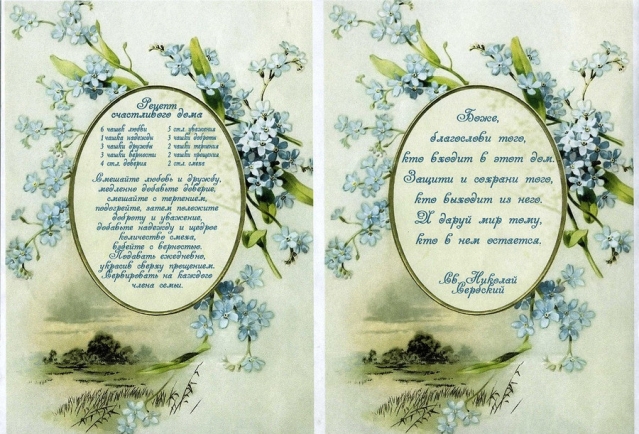 Рецепт
счастливого дома
6 чашек любви
1 чашка надежды
3 чашки дружбы
3 чашки верности
4 стл. доверия
5 стл. уважения
3 чашки доброты
2 чашки терпения
2 чашки прощения
2 стл. смеха
Смешайте любовь и дружбу,
медленно добавьте доверие,
смешайте с терпением,
подогрейте, затем положите
доброту и уважение,
добавьте надежду и щедрое
количество смеха,
взбейте с верностью.
Подавать ежедневно,
украсив сверху прощением.
Сервировать на каждого
члена семьи.
Боже,
благослови того,
кто входит в этот дом.
Защити и сохрани того,
кто выходит из него.
И даруй мир тому,
кто в нем остается.
Св. Николай
Сербский